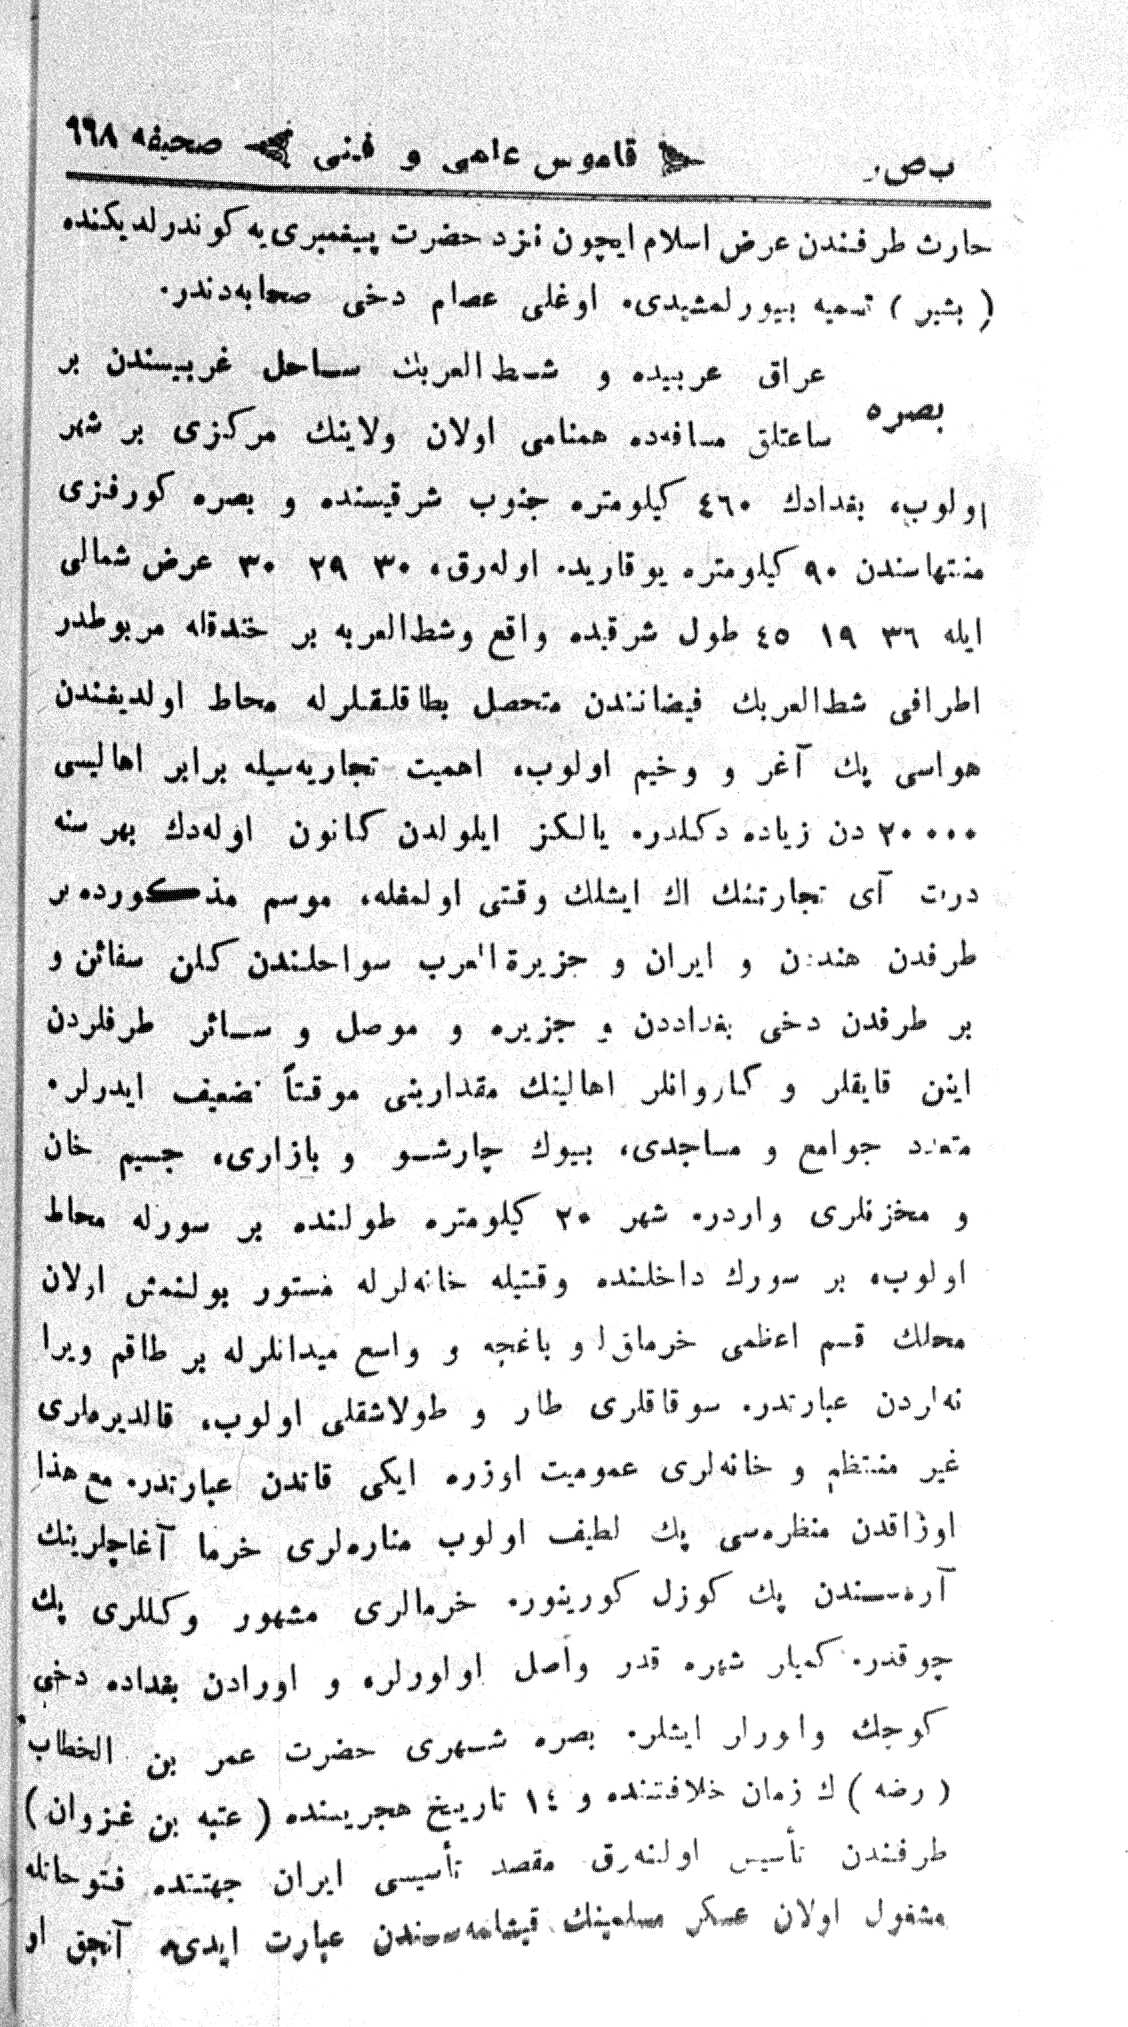 ب ص ر قاموس علمی و فنی صحیفه ٦٦٨
حارث طرفندن عرض اسلام ایچون نزد حضرت پیغمبری‌یه کوندرلدیکنده
( بشیر ) تسمیه بیورلمشیدی. اوغلی عصام دخی صحابه‌دندر.
بصره عراق عربیده و شط العربك ساحل غربیسندن بر
ساعتلق مسافه‌ده همنامی اولان ولاینك مرکزی بر شهر
اولوب، بغدادك ٤٦٠ کیلومتره جنوب شرقیسنده و بصره کورفزی
منتهاسندن ٩٠ کیلومتره یوقاریده اوله‌رق، ٣٠ ٢٩ ٣٠ عرض شمالی
ایله ٣٦ ١٩ ٤٥ طول شرقیده واقع وشط‌العربه بر خندقله مربوطدر
اطرافی شط‌العربك فیضانندن متحصل بطاقلقلرله محاط اولدیغندن
هواسی پك آغر و وخیم اولوب، اهمیت تجاریه‌سیله برابر اهالیسی
٢٠٠٠٠ دن زیاده دکلدر. یالکز ایلولدن کانون اوله‌دك بهر سنه
درت آی تجارتنك اك ایشلك وقتی اولمغله، موسم مذکورده بر
طرفدن هنددن و ایران و جزیرة‌العرب سواحلندن کلن سفائن و
بر طرفدن دخی بغداددن و جزیره و موصل و سائر طرفلردن
اینن قایقلر و کاروانلر اهالینك مقدارینی موقتاً تضعیف ایدرلر.
متعدد جوامع و مساجدی، بیوك چارشو و بازاری، جسیم خان
و مخزنلری واردر. شهر ٢٠ کیلومتره طولنده بر سورله محاط
اولوب، بر سورك داخلنده وقتیله خانه‌لرله مستور بولنمش اولان
محلك قسم اعظمی خرمالق و باغچه و واسع میدانلرله بر طاقم ویرا
نه‌لردن عبارتدر. سوقاقلری طار و طولاشقلی اولوب، قالدیرملری
غیر منتظم و خانه‌لری عمومیت اوزره ایکی قاتدن عبارتدر. مع هذا
اوزاقدن منظره‌سی پك لطیف اولوب مناره‌لری خرما آغاچلرینك
آره‌سندن پك کوزل کورینور. خرمالری مشهور وکللری پك
چوقدر. کمیلر شهره قدر واصل اولورلر. و اورادن بغداده دخی
کوچك واپورلر ایشلر. بصره شهری حضرت عمر بن الخطاب
( رضه ) ك زمان خلافتنده و ١٤ تاریخ هجریسنده ( عتبه بن غزوان )
طرفندن تأسیس اولنه‌رق مقصد تأسیسی ایران جهتنده فتوحاتله
مشغول اولان عسکر مسلمینك قیشلامه‌سندن عبارت ایدی. آنجق او